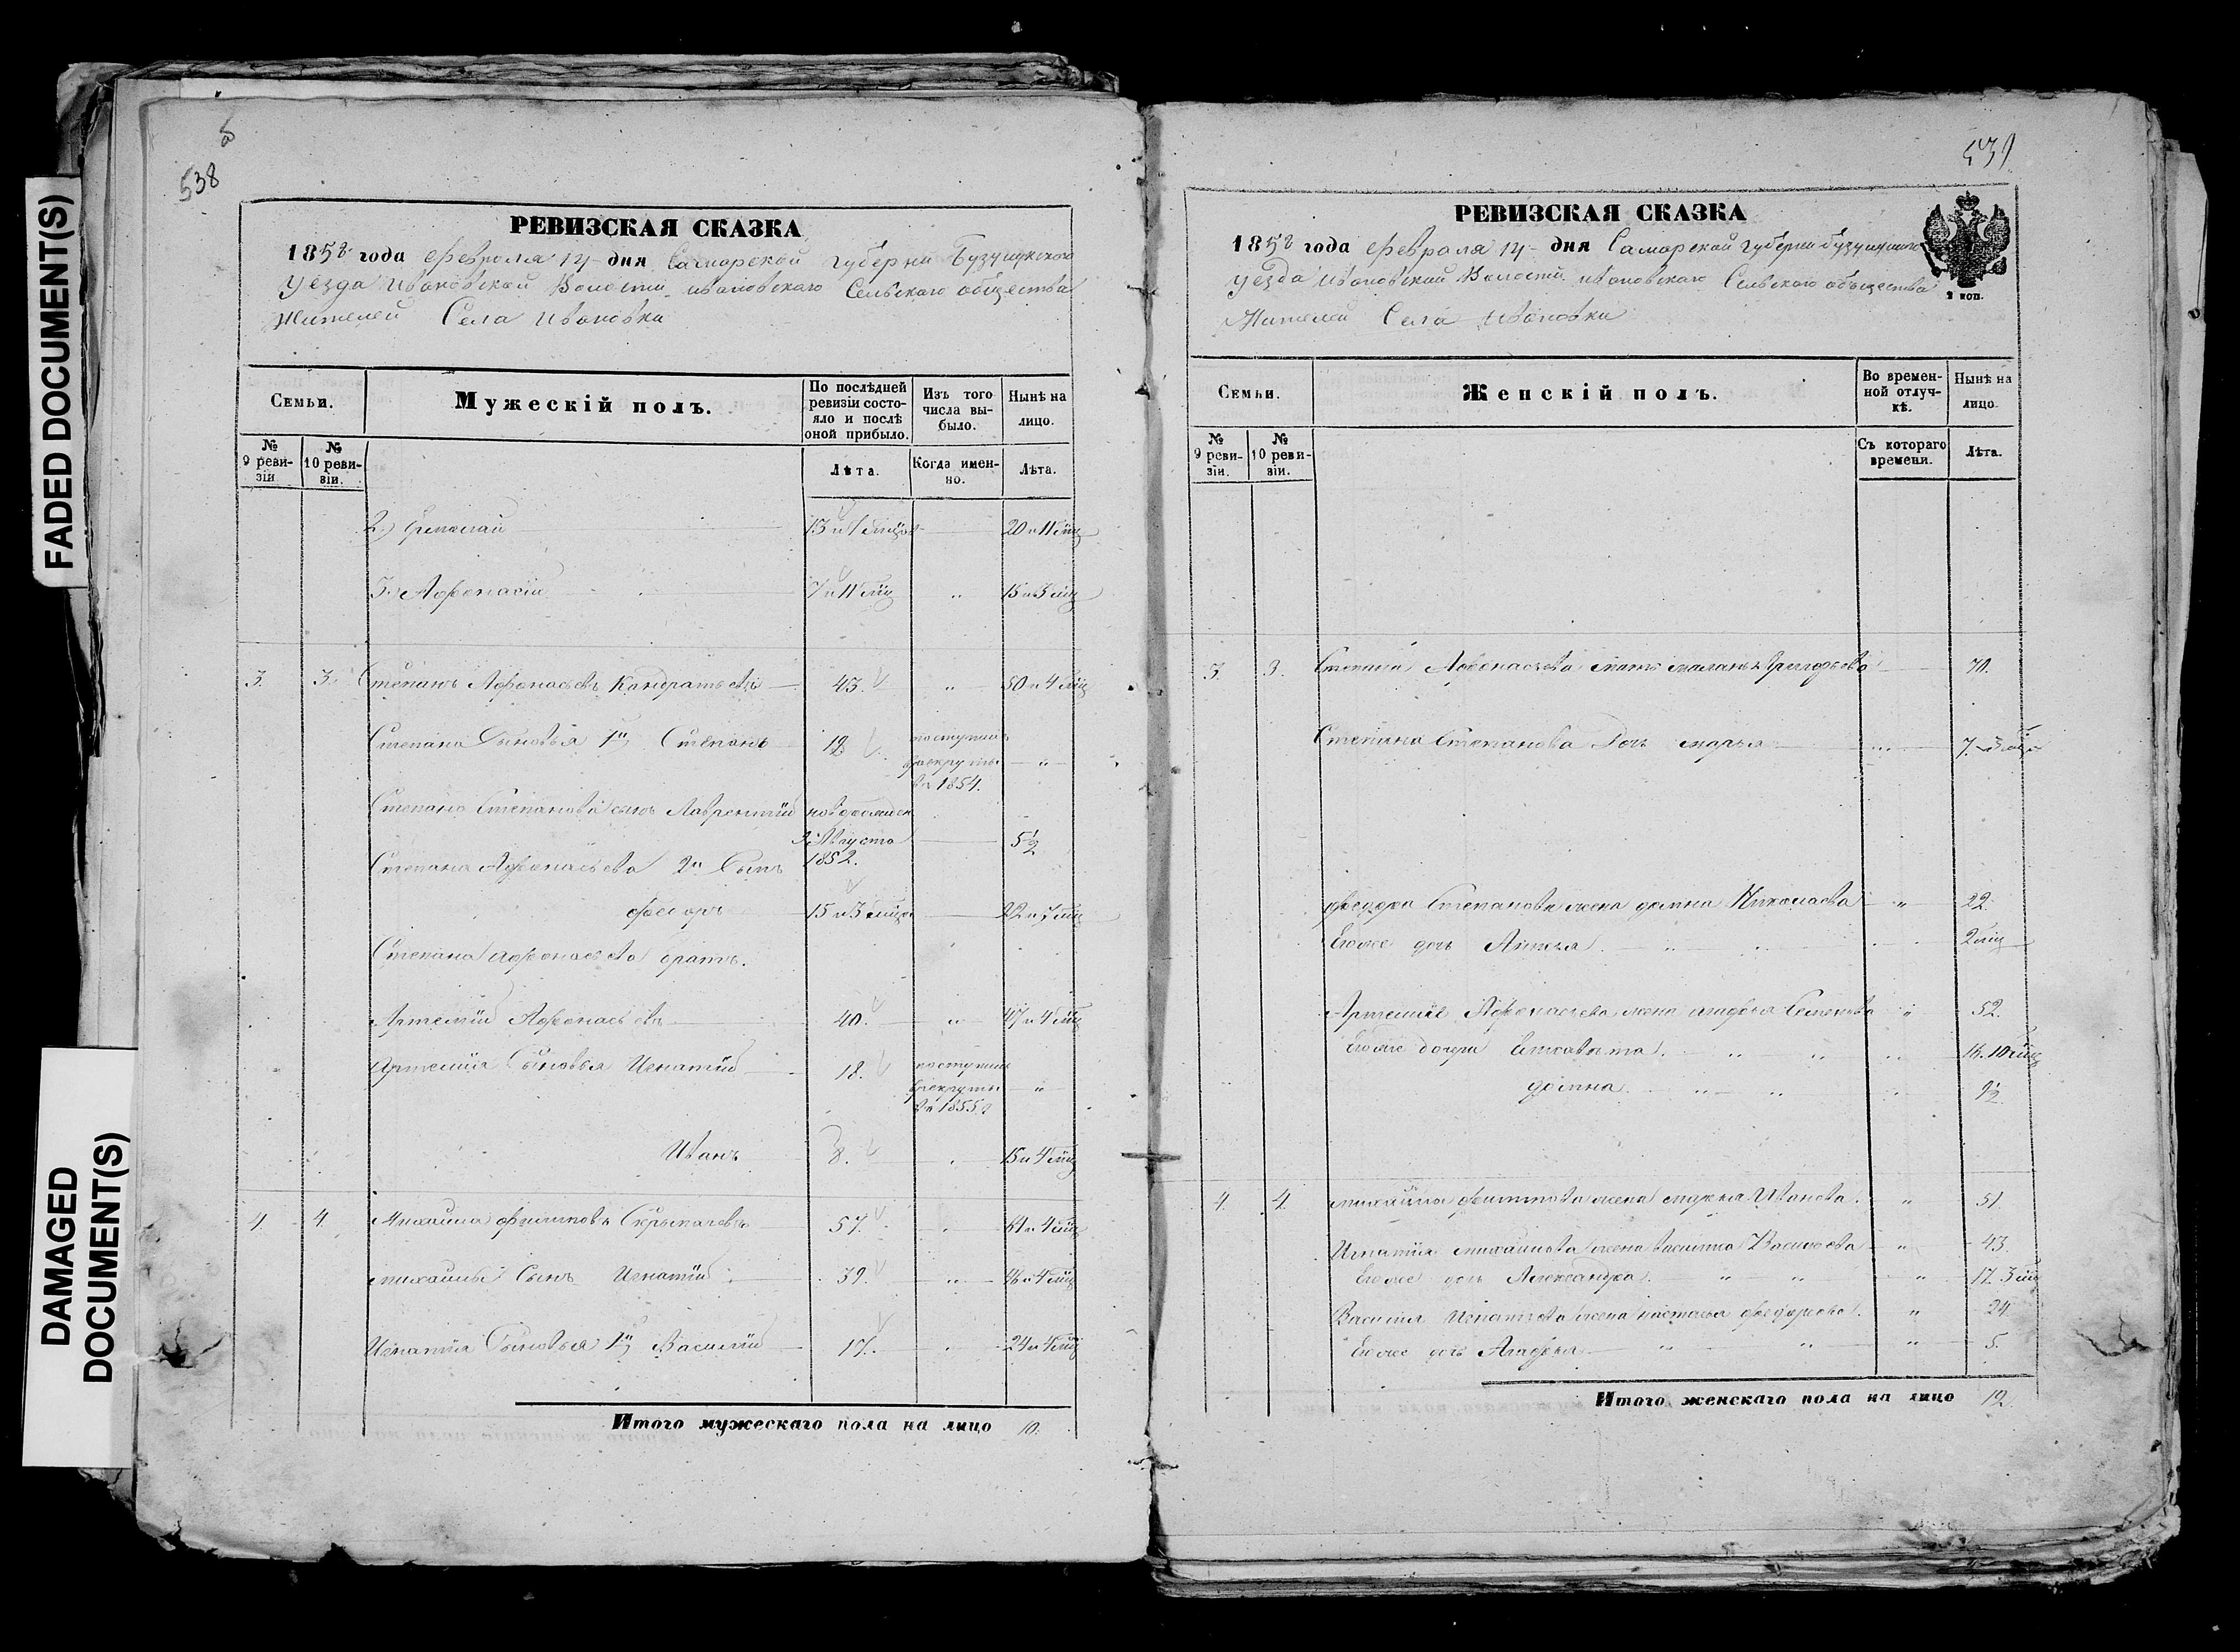 FADED DOCUMENT(S)
DAMAGED
DOCUMENT(S)
538
РЕВИЗСКАЯ СКАЗКА
1858 года Февраля 14 дня Самарской губерни Бузулукского
уезда Ивановской Волости ивановскаго Сельскаго общества
Жителей Села Ивановки
Семьи.
Мужескій полъ.
По послѣдней
ревизіи состо-
яло и послѣ
оной прибыло.
Изъ того
числа вы-
было.
Нынѣ на
лицо.
№
9 реви-
зіи.
№
10 реви-
зіи.
Лѣта.
Когда имен-
но.
Лѣта.
2) Ермолай 20 и 11 мцъ
3. Афонасій 7 и 11 мцъ " 15 и 3 мцъ
3. 3. Степанъ Афонасьевъ Кандратьевъ 43. " 50 и 4 мцъ
Степана Сыновья 1й Степанъ поступилъ
врекруты "
въ 1854.
Степана Степанова сынъ Лаврентій
Августа 5½
1852.
Степана Афонасьева 2й Сынъ
Федоръ 15 и 3 22 и 7 мцъ
Степана Афонасьева братъ.
Артемій Афонасьевъ 40. " 47 и 4 мцъ
Артемія Сыновья Игнатій 18. поступилъ
врекруты "
въ 1855
Иванъ 8. 15 и 4 мцъ
4. 4. Михаила Филиповъ 57. 64 и 4 мцъ
михаилы Сынъ Игнатій 39. " 46 и 4 мцъ
Игнатія Сыновья 1й Василій 17. 24 и 4 мцъ
Итого мужескаго пола на лицо 10.
539
РЕВИЗСКАЯ СКАЗКА
1858 года Февраля 14 дня Самарской губерни бузулукского
уезда ивановской Волости ивановскаго Сельскаго общества
Жителей Села Ивановки
2 коп.
Семьи.
Женскій полъ.
Во времен-
ной отлуч-
кѣ.
Нынѣ на
лицо.
№
9 реви-
зіи.
№
10 реви-
зіи.
Съ котораго
времени.
Лѣта.
3. 3. Степана Афонасьева мать маланья 70.
Степана Степанова дочь марья 7.
федора Степанова жена домна Николаева " 22.
Егоже дочь 2 мцъ
Артемія Афонасьева жена агафья Семенова " 52.
Егоже дочери Елизавета. 16. 10 мцъ
домна 9½
4. 4. михаила филипова жена Иванова. " 51.
Игнатія михаилова жена василиса Васильева " 43.
Егоже дочь Александра " 17. 3 мцъ
Василія Игнатьева жена настасья федорова. " 24
Егоже дочь Агафья " 5.
Итого женскаго пола на лицо 12.